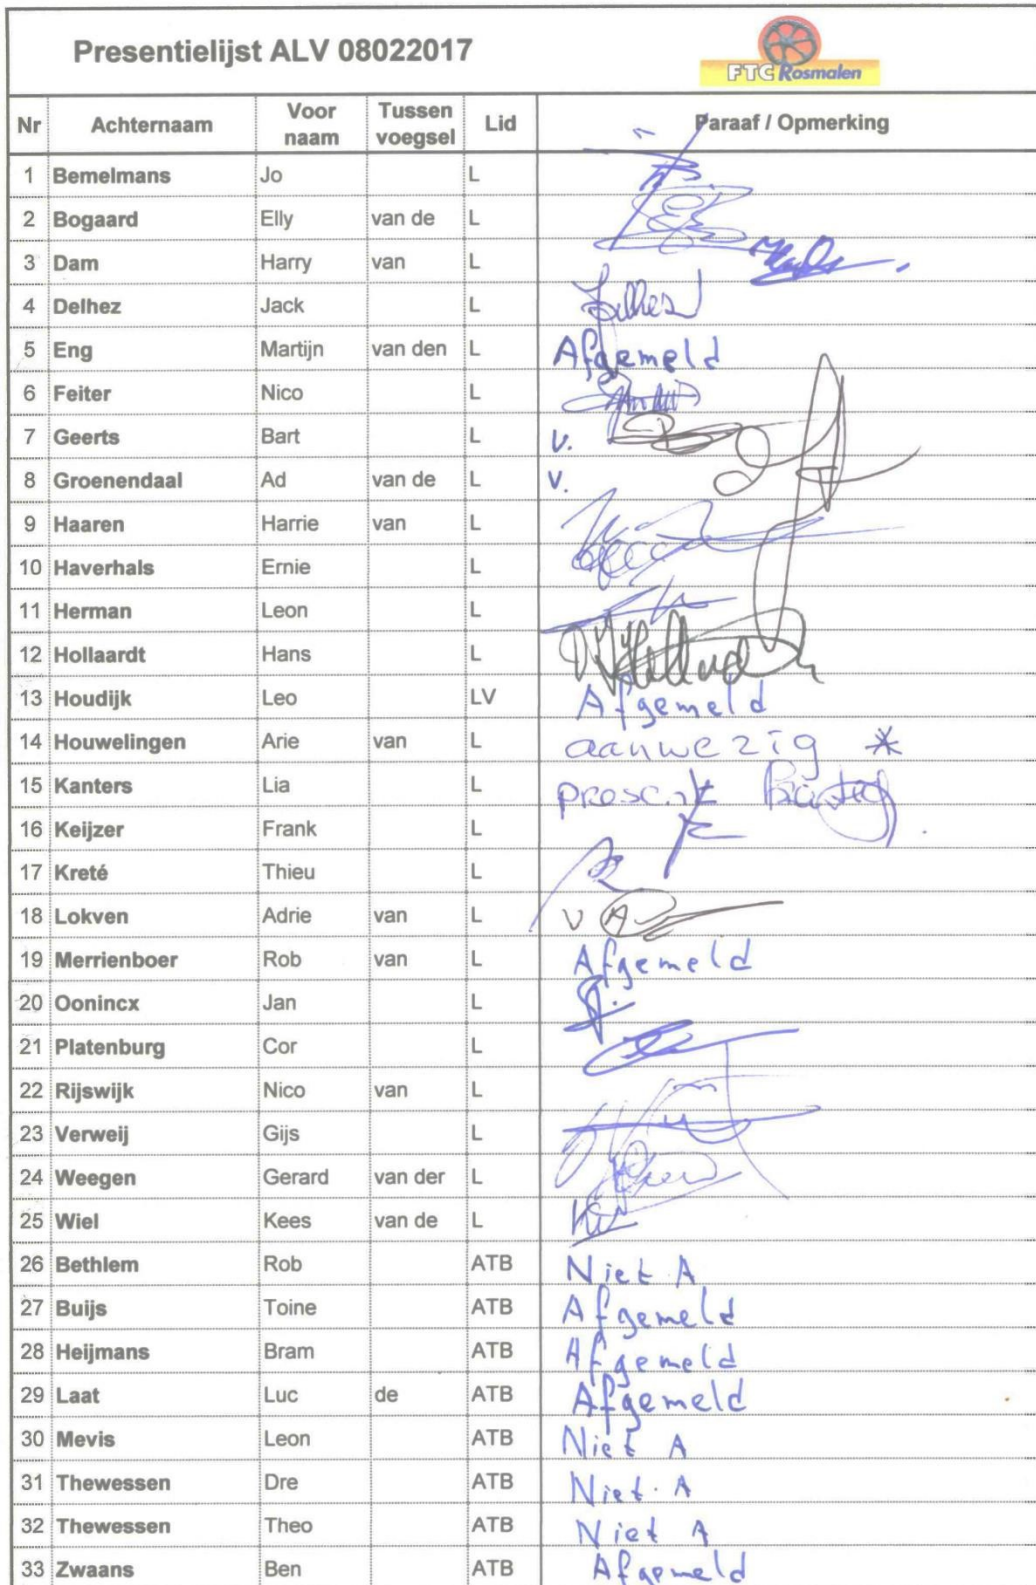 Presentielijst ALV 08022017
FTC Rosmalen
Nr Achternaam Voor naam Tussen voegsel Lid Paraaf / Opmerking
1 Bemelmans Jo L
2 Bogaard Elly van de L
3 Dam Harry van L
4 Delhez Jack L
5 Eng Martijn van den L Afgemeld
6 Feiter Nico L
7 Geerts Bart L v.
8 Groenendaal Ad van de L v.
9 Haaren Harrie van L
10 Haverhals Ernie L
11 Herman Leon L
12 Hollaardt Hans L
13 Houdijk Leo LV Afgemeld
14 Houwelingen Arie van L aanwezig *
15 Kanters Lia L present
16 Keijzer Frank L
17 Kreté Thieu L
18 Lokven Adrie van L v
19 Merrienboer Rob van L Afgemeld
20 Oonincx Jan L
21 Platenburg Cor L
22 Rijswijk Nico van L
23 Verweij Gijs L
24 Weegen Gerard van der L
25 Wiel Kees van de L
26 Bethlem Rob ATB Niet A
27 Buijs Toine ATB Afgemeld
28 Heijmans Bram ATB Afgemeld
29 Laat Luc de ATB Afgemeld
30 Mevis Leon ATB Niet A
31 Thewessen Dre ATB Niet A
32 Thewessen Theo ATB Niet A
33 Zwaans Ben ATB Afgemeld